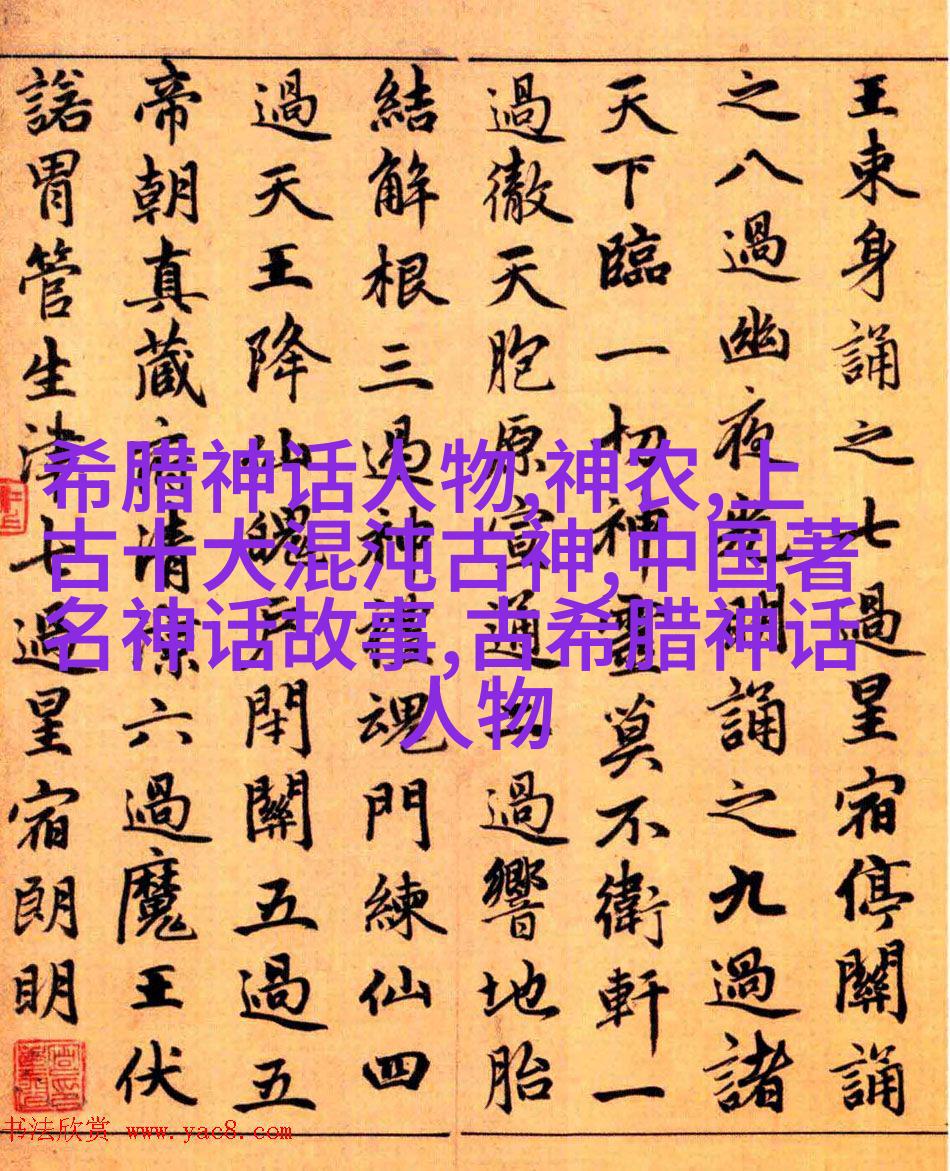 王束身誦之七過星宿停關誦
之八過幽夜光明誦之九過諸
天下臨一切神靈莫不衛軒一
過徹天胞原宣通二過響地胎
結解根三過神護魂門練仙四
過天王降仙魄戶閉關五過五
帝朝真藏府清涼六過魔王伏
諾胃管生津七過星宿朗明
希腊神话人物,神农,上
古十大混沌古神,中国著
名神话故事,古希腊神话
人物
书法欣赏 www.yac8.com